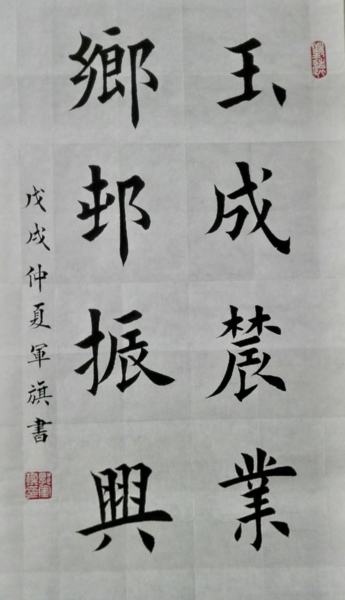 玉成辳業
鄉邨振興
戊戌仲夏軍旗書